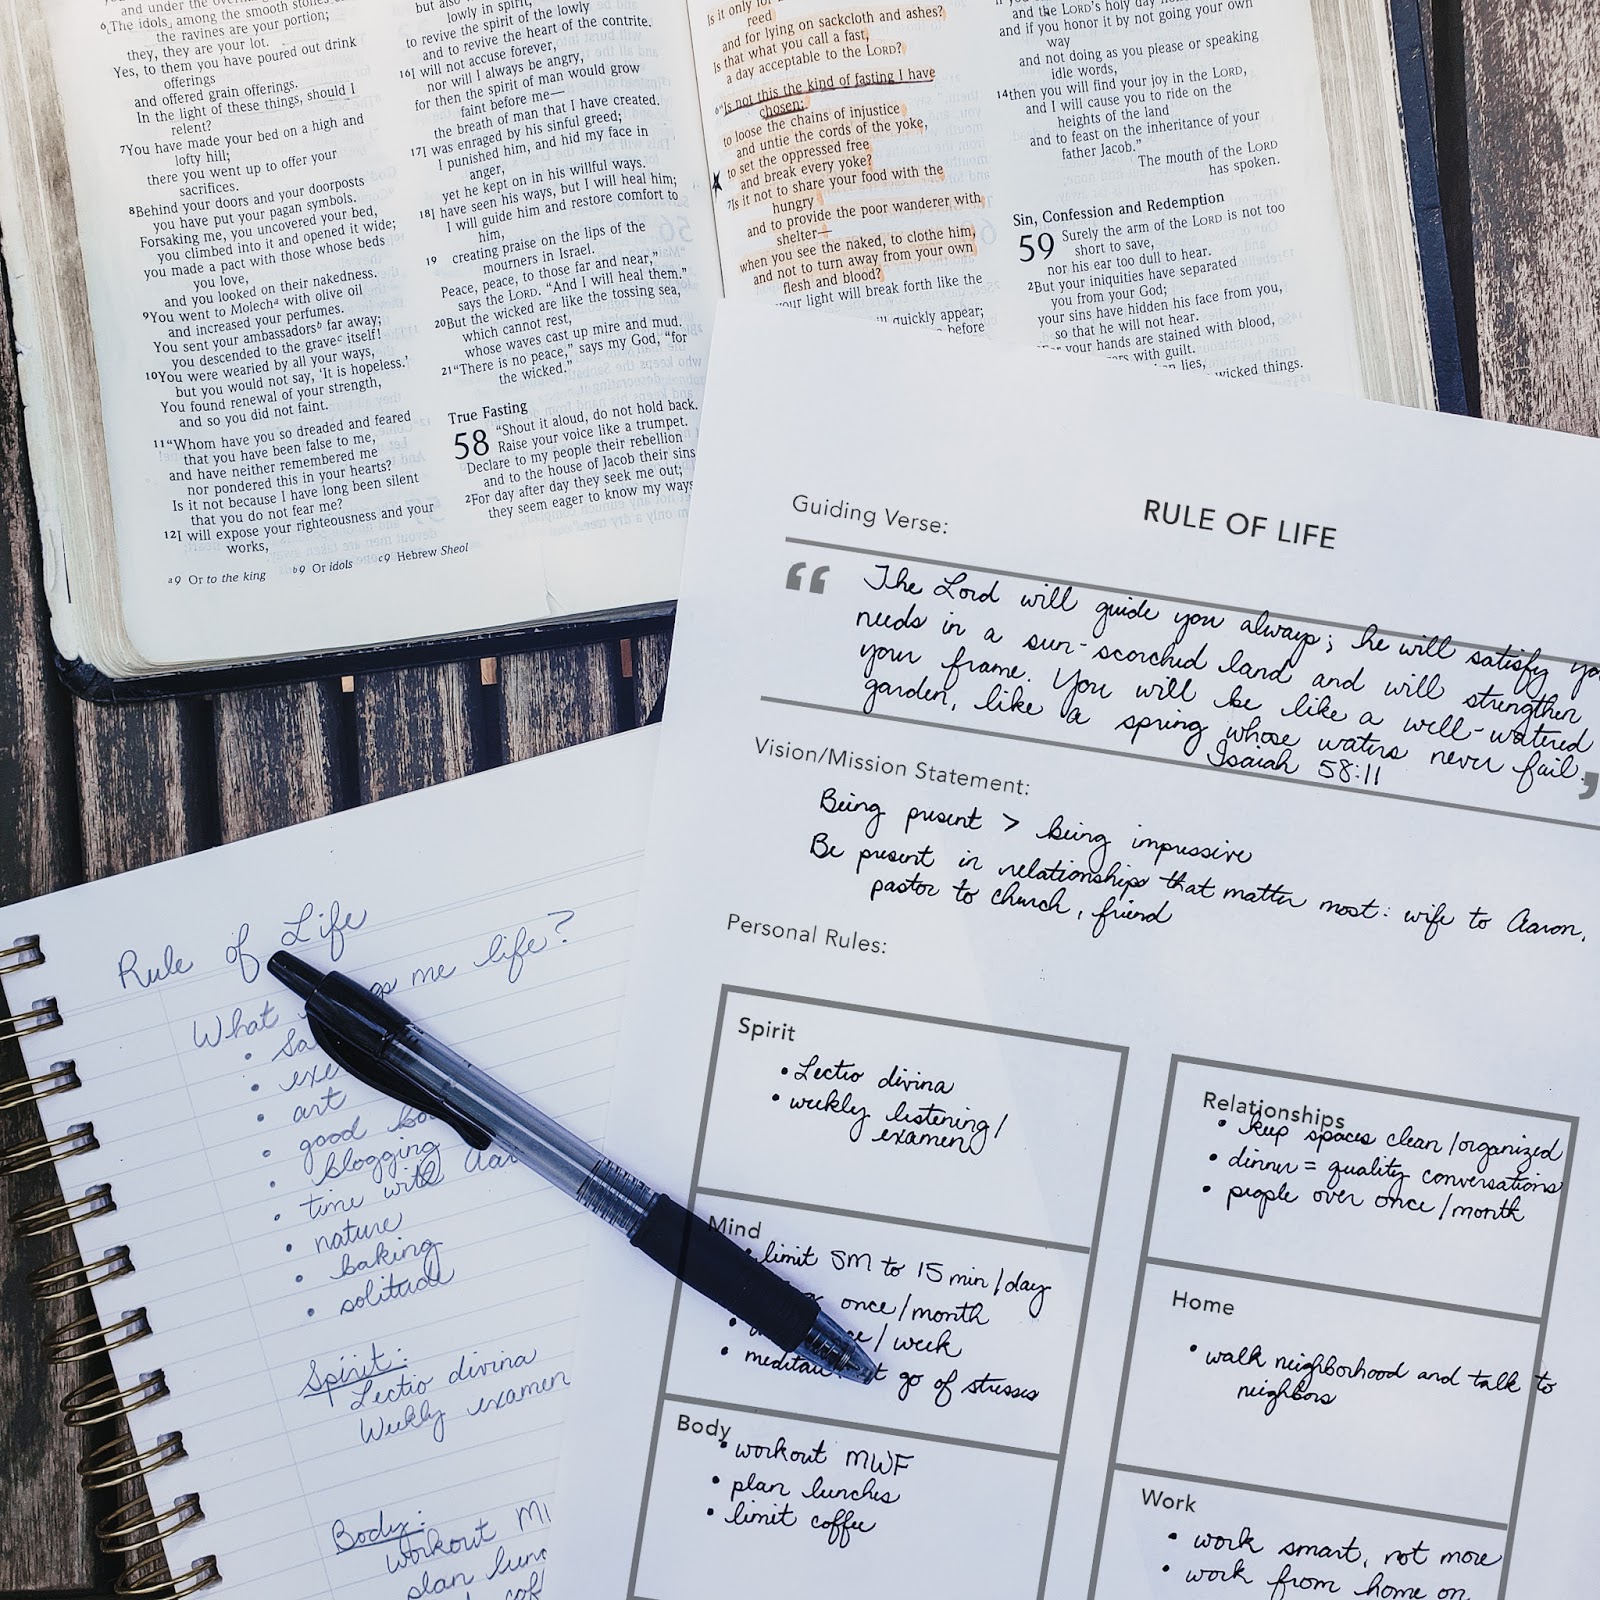 and under the
6“The idols, among the smooth stones of
the ravines are your portion;
they, they are your lot.
Yes, to them you have poured out drink
offerings
and offered grain offerings.
In the light of these things, should I
relent?
7You have made your bed on a high and
lofty hill;
there you went up to offer your
sacrifices.
8Behind your doors and your doorposts
you have put your pagan symbols.
Forsaking me, you uncovered your bed,
you climbed into it and opened it wide;
you made a pact with those whose beds
you love,
and you looked on their nakedness.
9You went to Molecha with olive oil
and increased your perfumes.
You sent your ambassadorsb far away;
you descended to the gravec itself!
10You were wearied by all your ways,
but you would not say, ‘It is hopeless.’
You found renewal of your strength,
and so you did not faint.
11“Whom have you so dreaded and feared
that you have been false to me,
and have neither remembered me
nor pondered this in your hearts?
Is it not because I have long been silent
that you do not fear me?
12I will expose your righteousness and your
works,
a9 Or to the king b9 Or idols c9 Hebrew Sheol
but also
lowly in spirit,
to revive the spirit of the lowly
and to revive the heart of the contrite.
16I will not accuse forever,
nor will I always be angry,
for then the spirit of man would grow
faint before me—
the breath of man that I have created.
17I was enraged by his sinful greed;
I punished him, and hid my face in
anger,
yet he kept on in his willful ways.
18I have seen his ways, but I will heal him;
I will guide him and restore comfort to
him,
19 creating praise on the lips of the
mourners in Israel.
Peace, peace, to those far and near,”
says the LORD. “And I will heal them.”
20But the wicked are like the tossing sea,
which cannot rest,
whose waves cast up mire and mud.
21“There is no peace,” says my God, “for
the wicked.”
True Fasting
58 “Shout it aloud, do not hold back.
Raise your voice like a trumpet.
Declare to my people their rebellion
and to the house of Jacob their sins.
2For day after day they seek me out;
they seem eager to know my ways,
Is it only for
reed
and for lying on sackcloth and ashes?
Is that what you call a fast,
a day acceptable to the LORD?
6“Is not this the kind of fasting I have
chosen:
to loose the chains of injustice
and untie the cords of the yoke,
to set the oppressed free
and break every yoke?
7Is it not to share your food with the
hungry
and to provide the poor wanderer with
shelter—
when you see the naked, to clothe him,
and not to turn away from your own
flesh and blood?
your light will break forth like the
quickly appear;
before
and the LORD’s holy day
and if you honor it by not going your own
way
and not doing as you please or speaking
idle words,
14then you will find your joy in the LORD,
and I will cause you to ride on the
heights of the land
and to feast on the inheritance of your
father Jacob.”
The mouth of the LORD
has spoken.
Sin, Confession and Redemption
59 Surely the arm of the LORD is not too
short to save,
nor his ear too dull to hear.
2But your iniquities have separated
you from your God;
your sins have hidden his face from you,
so that he will not hear.
your hands are stained with blood,
with guilt.
lies,
wicked things.
RULE OF LIFE
Guiding Verse:
“ The Lord will guide you always; he will satisfy
needs in a sun-scorched land and will strengthen
your frame. You will be like a well-watered
garden, like a spring whose waters never fail.
Isaiah 58:11
Vision/Mission Statement:
Being present > being impressive
Be present in relationships that matter most: wife to Aaron,
pastor to church, friend
Personal Rules:
Spirit
• Lectio divina
• weekly listening/
examen
Mind
• limit SM to 15 min/day
once/month
/week
• go of stresses
Body
• workout MWF
• plan lunches
• limit coffee
Relationships
• keep spaces clean/organized
• dinner = quality conversations
• people over once/month
Home
• walk neighborhood and talk to
neighbors
Work
• work smart, not more
• work from home on
Rule of Life
What me life?
•
•
• art
• good
• blogging
• time with
• nature
• baking
• solitude
Spirit:
Lectio divina
Weekly examen
Body:
workout
plan